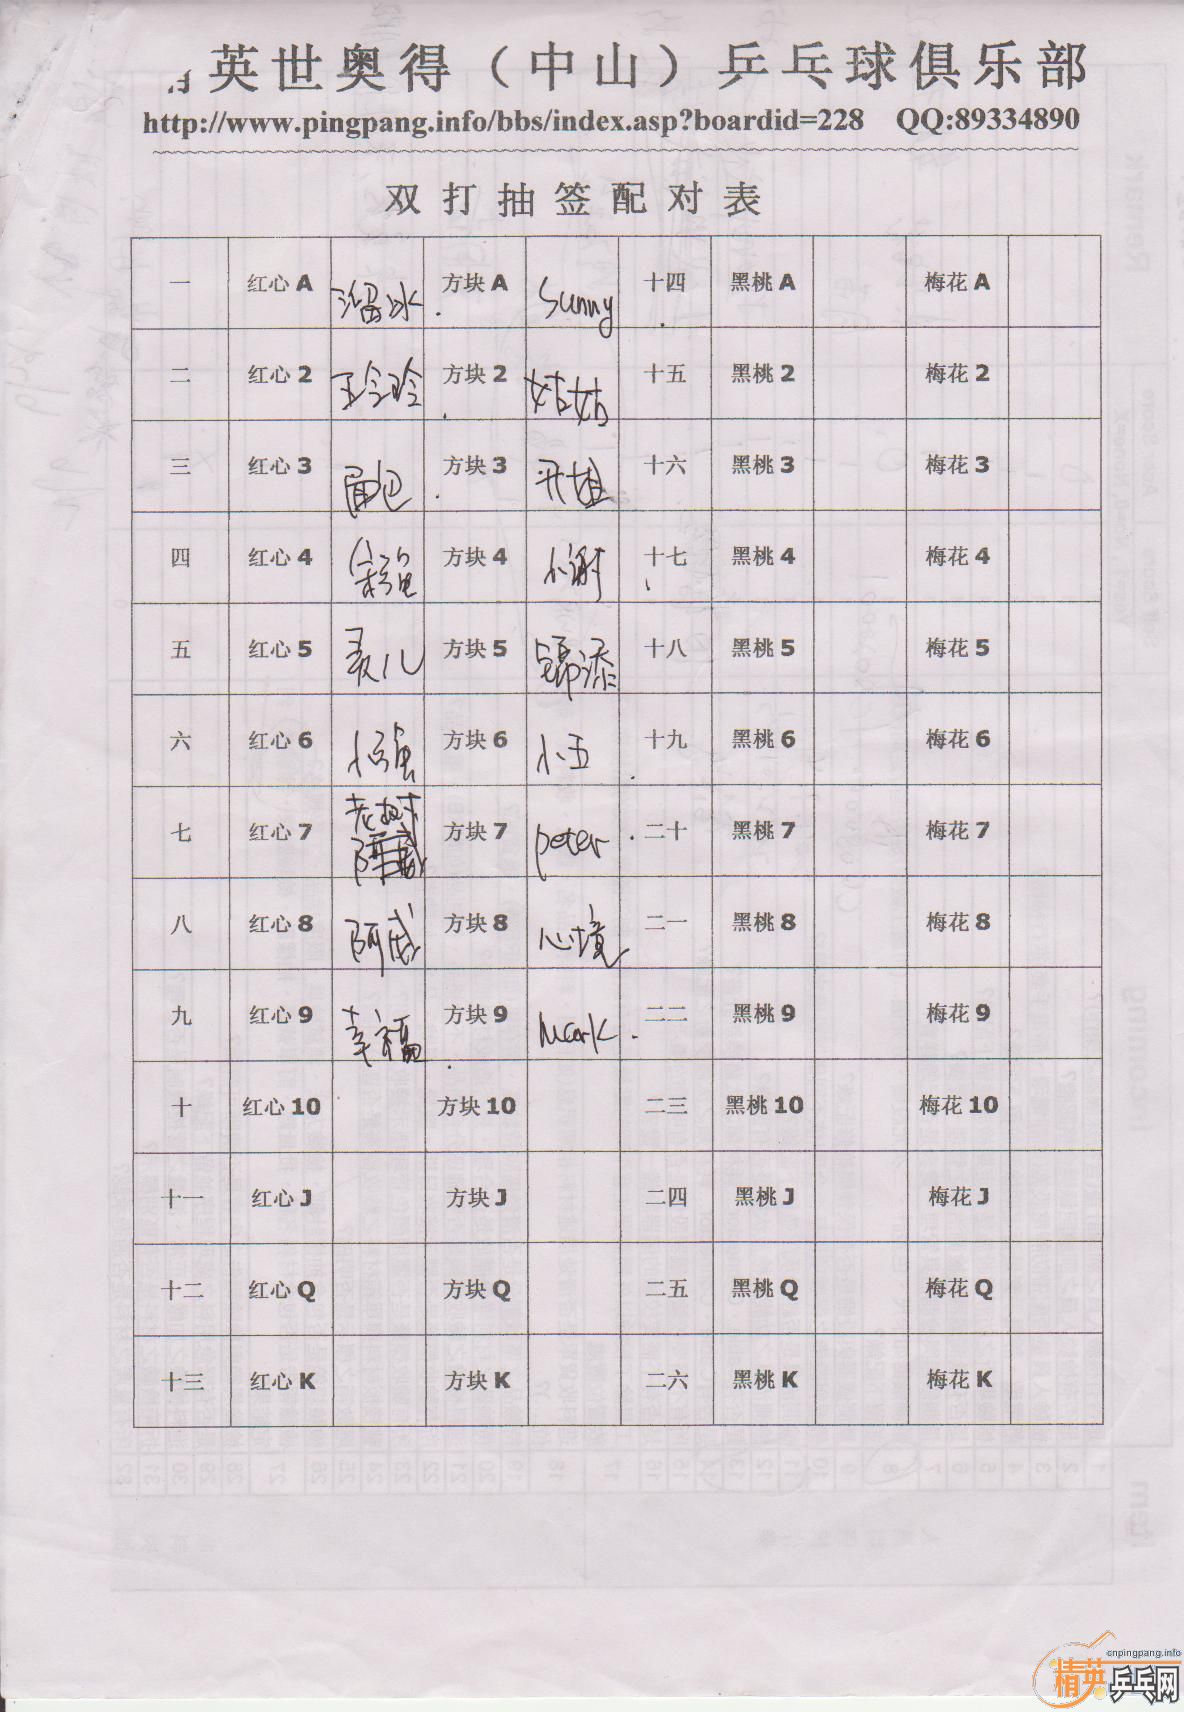 英世奥得（中山）乒乓球俱乐部
http://www.pingpang.info/bbs/index.asp?boardid=228 QQ:89334890
双打抽签配对表
一 红心A 溜冰 方块A Sunny 十四 黑桃A 梅花A
二 红心2 王玲玲 方块2 姑姑 十五 黑桃2 梅花2
三 红心3 面包 方块3 十六 黑桃3 梅花3
四 红心4 方块4 小谢 十七 黑桃4 梅花4
五 红心5 方块5 十八 黑桃5 梅花5
六 红心6 小强 方块6 小五 十九 黑桃6 梅花6
七 红心7 老树 方块7 peter 二十 黑桃7 梅花7
八 红心8 阿威 方块8 心境 二一 黑桃8 梅花8
九 红心9 幸福 方块9 Mark 二二 黑桃9 梅花9
十 红心10 方块10 二三 黑桃10 梅花10
十一 红心J 方块J 二四 黑桃J 梅花J
十二 红心Q 方块Q 二五 黑桃Q 梅花Q
十三 红心K 方块K 二六 黑桃K 梅花K
cnpingpang.info
精英乒乓网